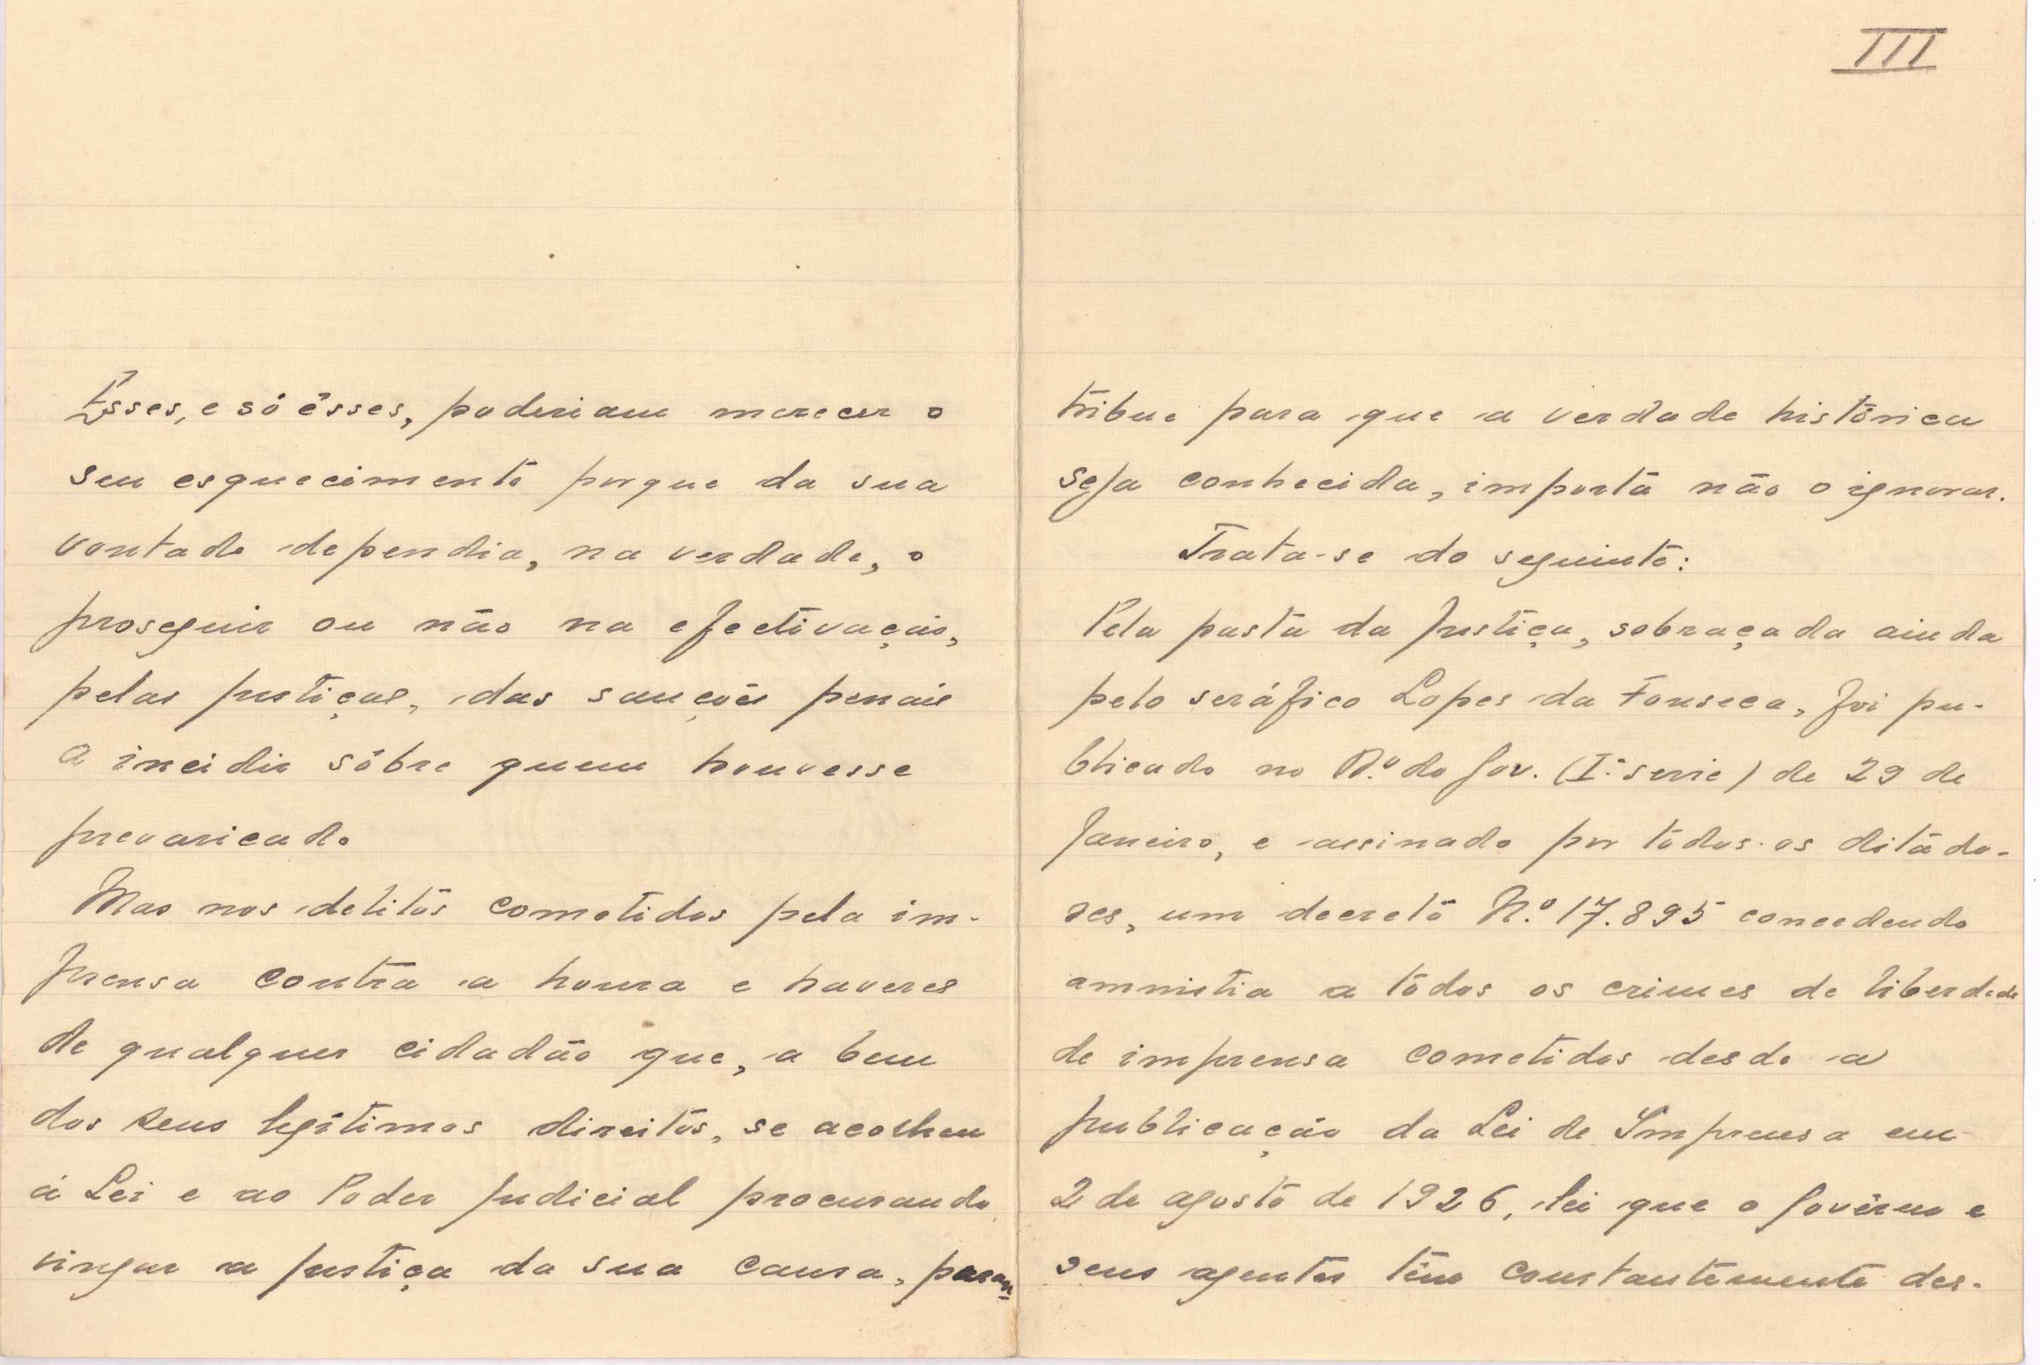 Êsses, e só êsses, poderiam merecer o
seu esquecimento porque da sua
vontade dependia, na verdade, o
proseguir ou não na efectivação,
pelas justiças, das sanções penais
a incidir sôbre quem houvesse
prevaricado
Mas nos delitos cometidos pela im-
prensa contra a honra e haveres
de qualquer cidadão que, a bem
dos seus legítimos direitos, se acolheu
á Lei e ao Poder Judicial procurando
vingar a justiça da sua causa,
III
tribue para que a verdade histórica
seja conhecida, importa não o ignorar.
Trata-se do seguinte:
Pela pasta da Justiça, sobraçada ainda
pelo seráfico Lopes da Fonseca, foi pu-
blicado no D.º do Gov. (I.ª serie) de 29 de
Janeiro, e assinado por todos os ditado-
res, um decreto N.º 17.895 concedendo
amnistia a todos os crimes de liberdade
de imprensa cometidos desde a
publicação da Lei de Imprensa em
2 de agosto de 1926, lei que o Govêrno e
seus agentes têm constantemente des-